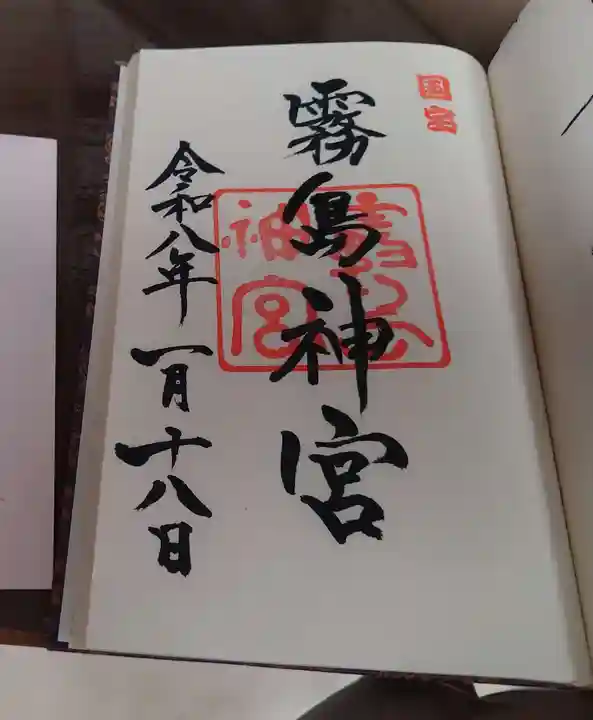 国宝
霧島神宮
霧島神宮
令和八年一月十八日